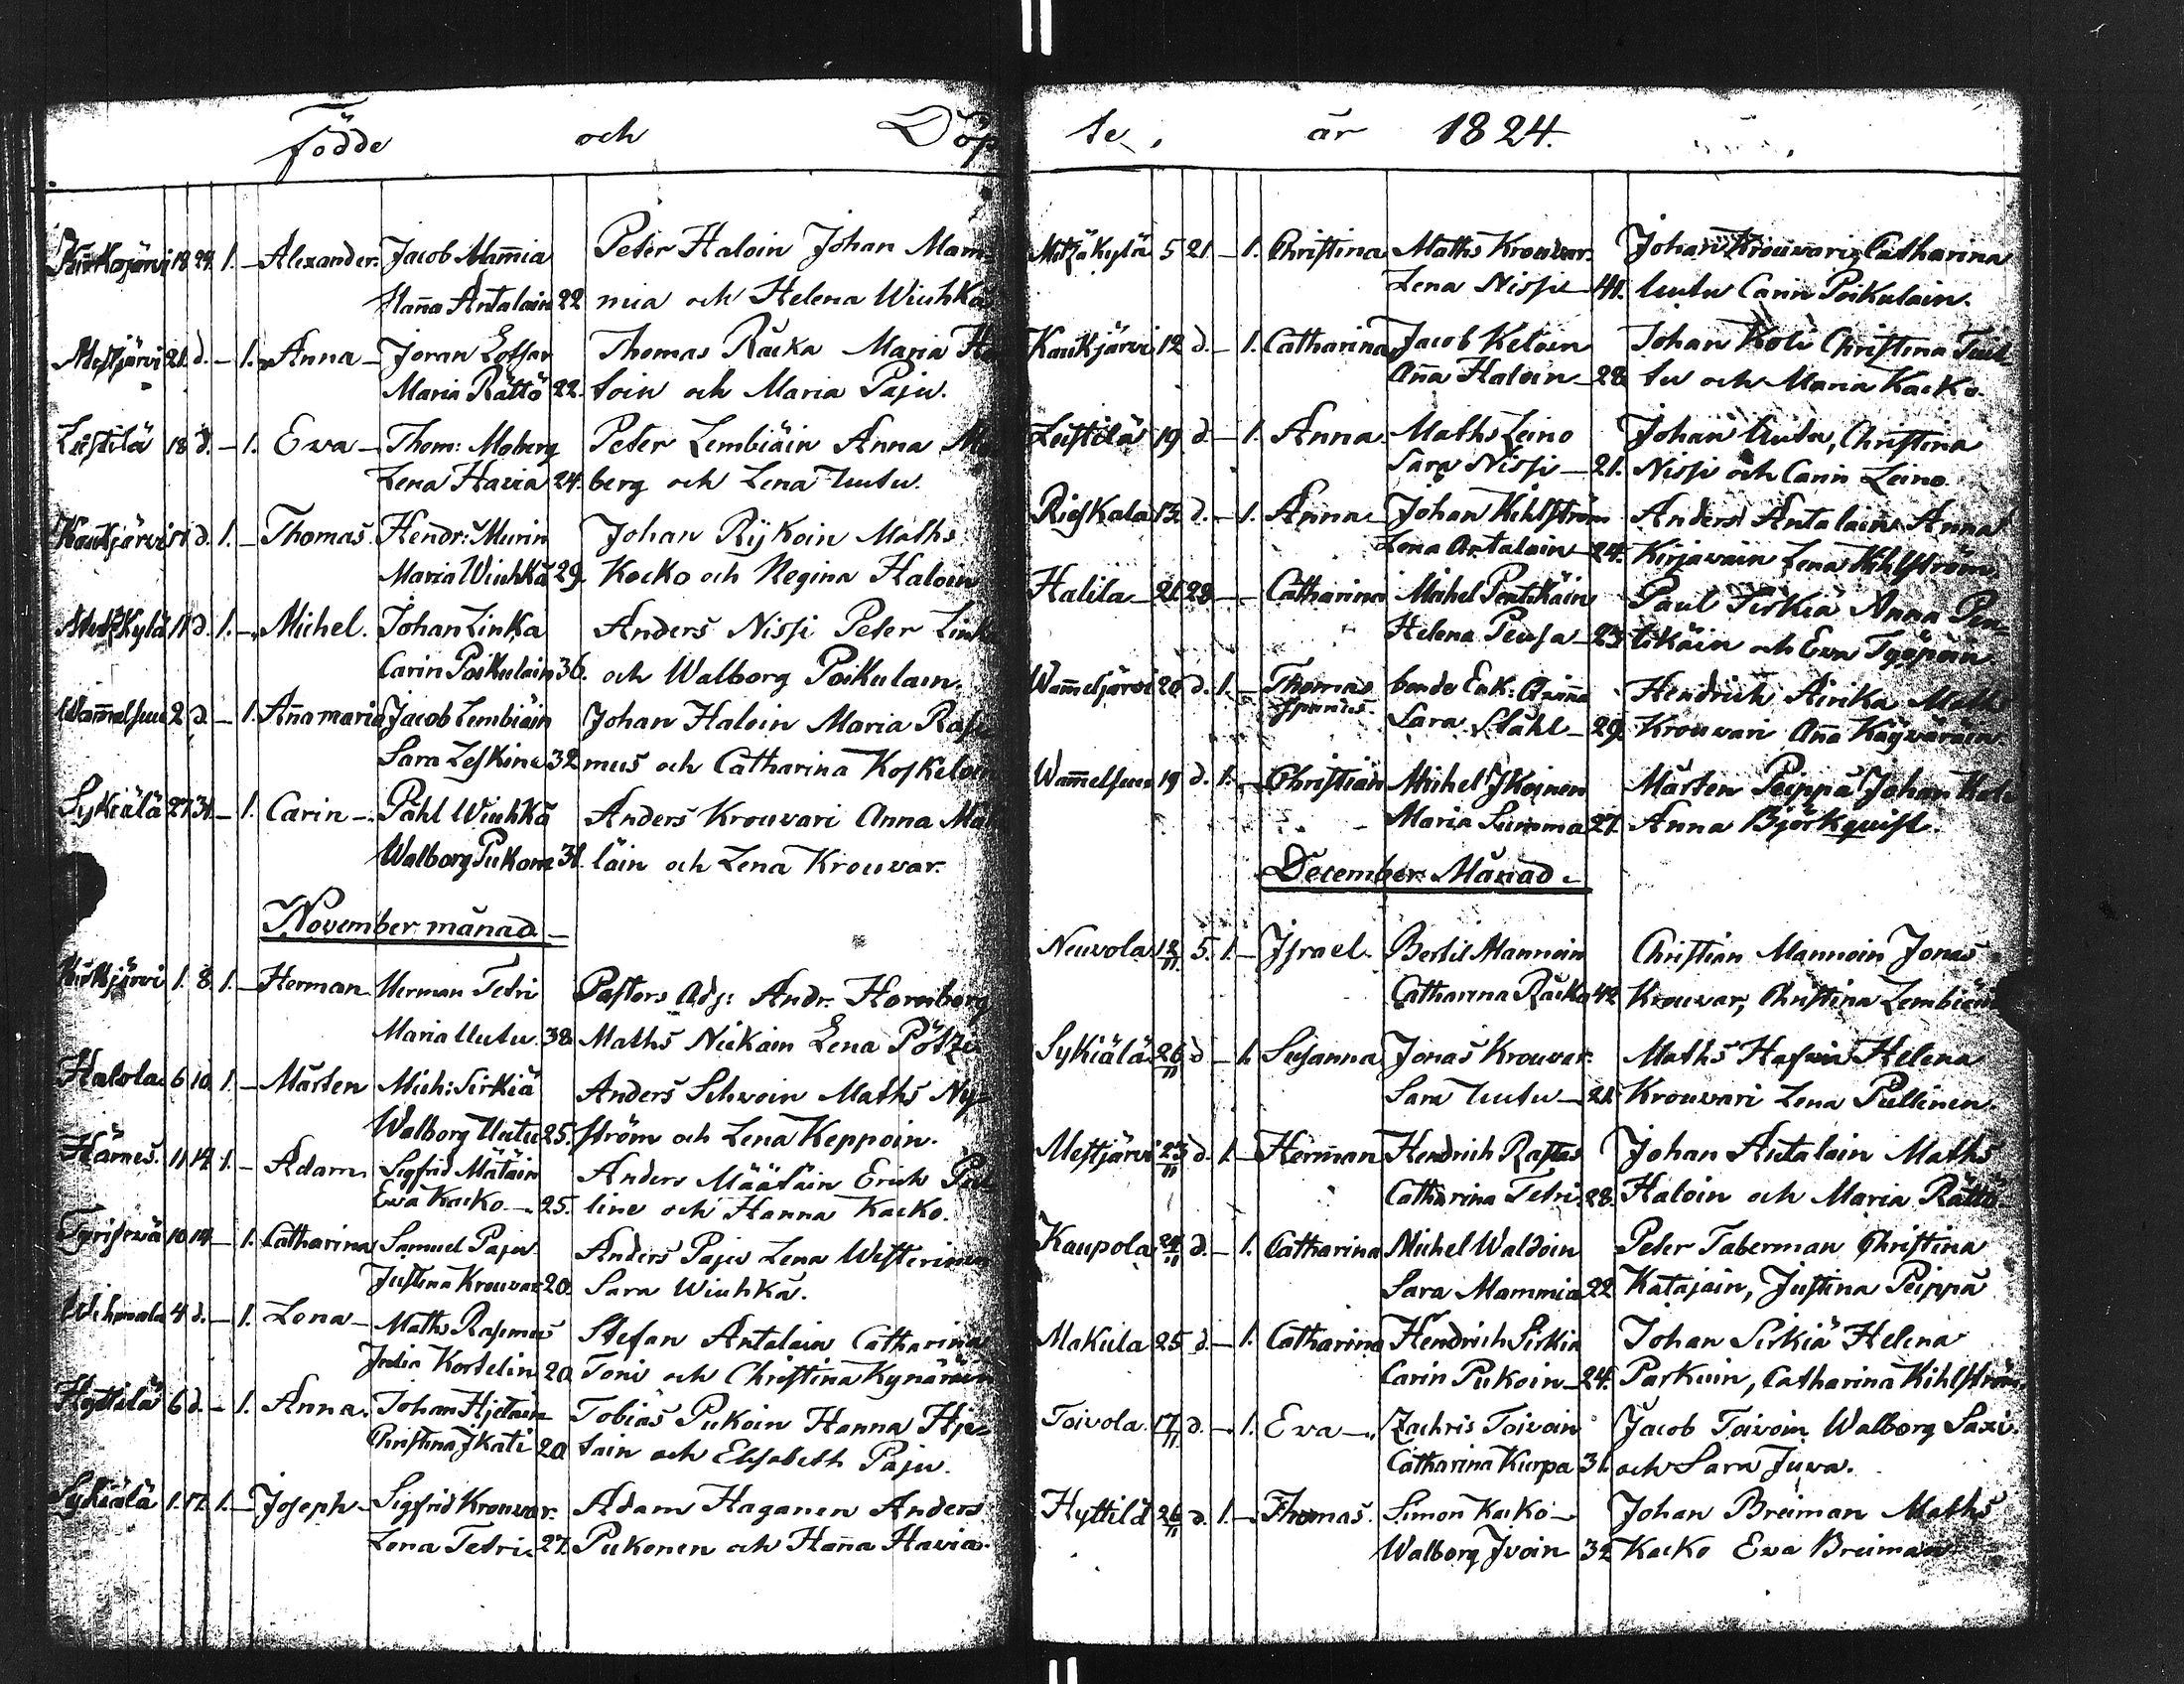 Födde och Döp
Kirkojärvi 18 24 1. – Alexander. Jacob Mam̄ia Peter Haloin Johan Mam-
Han̄a Antalain 22 mia och Helena Wiuhka
Mestjärvi 21. d. – 1. Anna – Joran Maria
Thomas Räcka Maria
Maria Rättö 22. toin och Maria Paju.
Leistilä 18 d. – 1. Eva – Thom: Moberg Peter Lembiäin Anna Mo
Lena Havia 24. berg och Lena Uutu.
Kaukjärvi d. 1. – Thomas. Hendr: Murin Johan Rijkoin Maths
Maria Wiuhka 29. Kacko och Regina Haloin
Kylä d. 1. – Michel. Johan Linka Anders Nissi Peter Linka
Carin Poikulain 36. och Walborg Poikulain.
Wam̄elsuu 2 d. – 1. An̄a maria Jacob Lembiäin Johan Haloin Maria Ras
Sara Leskine 32 mus och Catharina Koskeloin
Sykiälä 27 31 – 1. Carin – Påhl Wiuhka Anders Krouvari Anna
Walborg Pukone 31. läin och Lena Krouvar.
November månad –
Kirkjärvi 1. 8. 1. – Herman Herman Tetri Pastors Adj: Andr. Hornborg
Maria Uutu. 38 Maths Nickain Lena Pötzi
Halola 6 10 1. – Mårten Mich: Sirkiä Anders Ihvoin Maths Ny-
Walborg Uutu 25. ström och Lena Keppoin.
Härnes. 11 14 1. – Adam Sigfrid Mätäin Anders Määtäin Erich
Eva Kacko – 25. line och Hanna Kacko.
Tyrisevä 10 14 – 1. Catharina Samuel Paju Anders Paju Lena Westerinen
Justina Krouvar 20. Sara Wiuhka.
Wihmala 4 d. – 1. Lena – Maths Rasmus Stefan Antalain Catharina
Julia Kortelin 20 Toni och Christina Kynäräin
Hyttilä 6 d. – 1. Anna. Johan Hjetain Tobias Pukoin Hanna Hje-
Christina Ikati 20 tain och Elisabeth Paju.
Sykiälä 1. 17. 1. – Joseph – Sigfrid Krouvar. Adam Haganen Anders
Lena Tetri 27. Pukonen och Han̄a Havia.
te, år 1824.
Metzäkylä 5 21 – 1. Christina Maths Krouvar. Johan Krouvari, Catharina
Lena Nissi – 41. Uutu Carin Poikulain.
Kaukjärvi 12 d. – 1. Catharina Jacob Keloin Johan Koli Christina
An̄a Haloin – 28 tu och Maria Kacko.
Leistilä 19 d. – 1. Anna. Maths Leino Johan Uutu, Christina
Sara Nissi – 21. Nissi och Carin Leino.
Rieskala 13 d. – 1. Anna – Johan Kihlström Anders Antalain Anna
Lena Antalain – 24. Kirjavain Lena Kihlström.
Halila – 21. 28 – – Catharina Mihel Pentikäin Paul Sirkiä Anna Pen-
Helena Peusa – 23. tikäin och Eva Työpöin.
Wam̄eljärvi 20 d. 1. – Thomas bonde Enk: Hendrich Airika Maths
spurius. Sara Ståhl – 29. Krouvari An̄a Käyväräin.
Wam̄elsuu 19 d. 1. – Christian Michel Ikoinen Mårten Peippa Johan
Maria Summa 27. Anna Björkquist.
December Månad.
Neuvola 12/11. 5. 1. – Israel. Bertil Mannoin Christian Mannoin Jonas
Catharina Räcka 42 Krouvar, Christina Lembiäin
Sykiälä 26/11 d – 1. Susanna Jonas Krouvar. Maths Helena
Sara Uutu – 21. Krouvari Lena Pullinen.
Mestjärvi 23/11 d. 1. – Herman̄ Hendrich Rastas Johan Antalain Maths
Catharina Tetri 28. Haloin och Maria Rättö
Kaupola 24/11 d. – 1. Catharina Michel Waldoin Peter Taberman Christina
Sara Mammia 22 Katajain, Justina Peippa
Makula 25 d. – 1. Catharina Hendrich Sirkiä Johan Sirkiä Helena
Carin Pukoin – 24. Parkuin, Catharina Kihlström
Toivola. 17/11. d. – 1. Eva – Zachris Toivoin Jacob Toivoin Walborg Saxi.
Catharina Kurpa 31. och Sara Juva.
Hyttilä 26/11 d. 1. – Thomas. Simon Kacko – Johan Breiman Maths
Walborg Ivoin 32 Kacko Eva Breiman